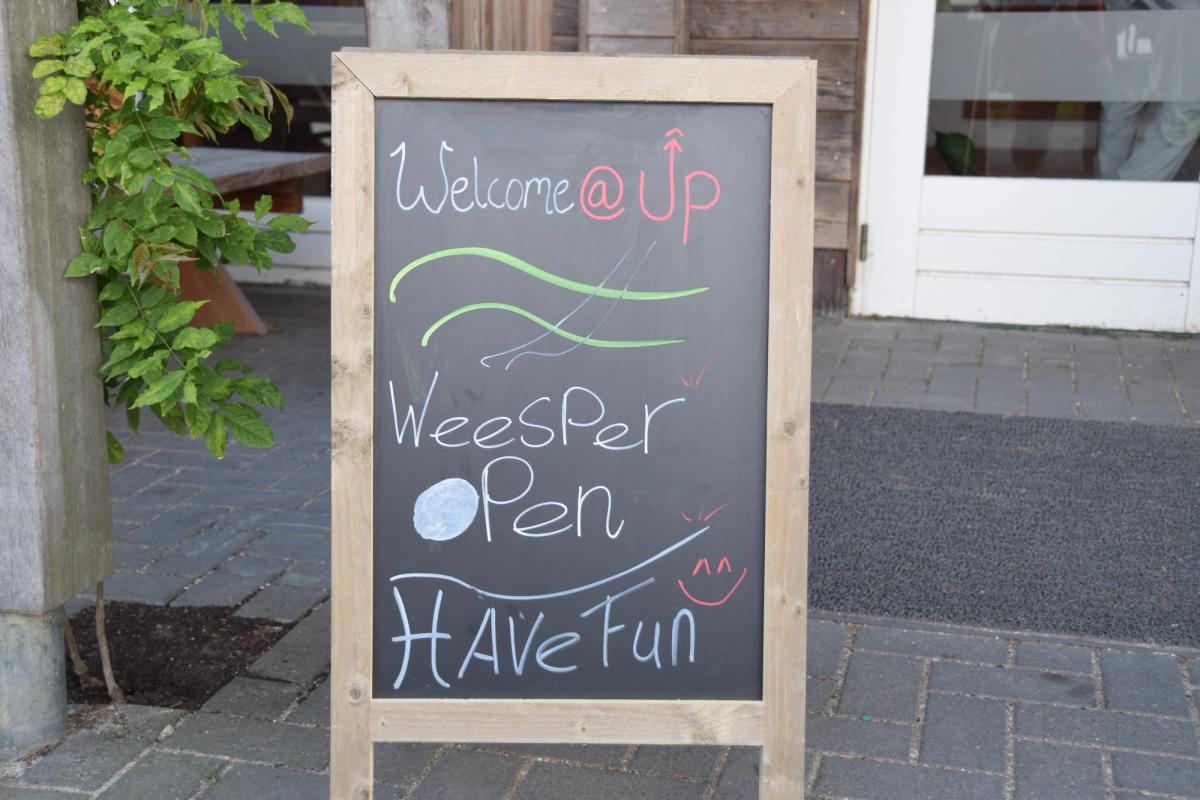 Welcome @ Up
Weesper
Open
Have Fun